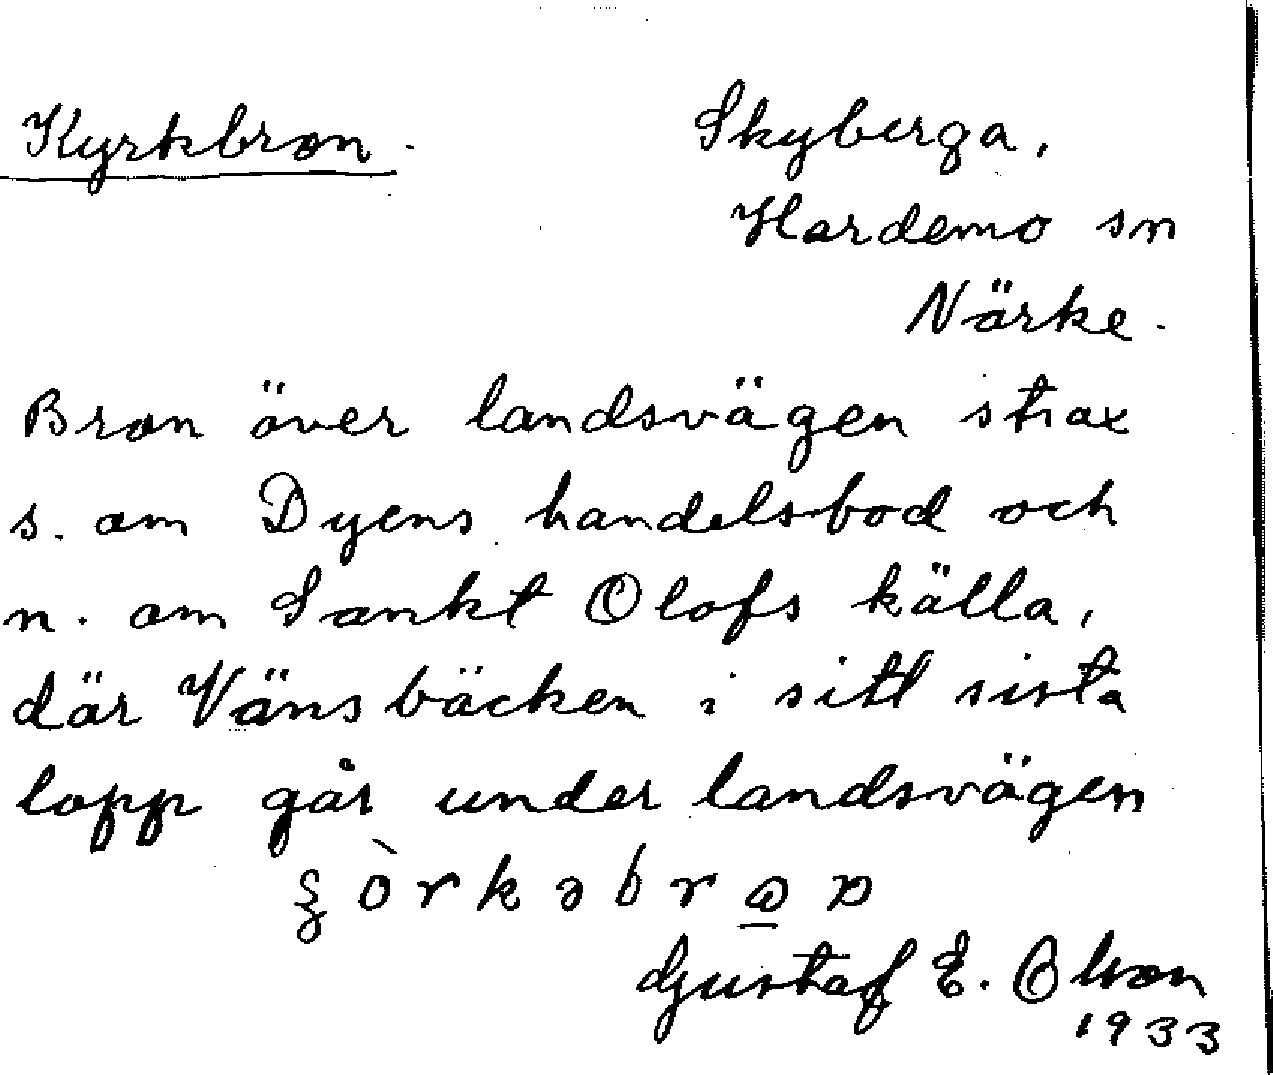 Kyrkbron.
Skyberga,
Hardemo sn
Närke.
Bron över landsvägen strax
s. om Dyens handelsbod och
n. om Sankt Olofs källa,
där Vänsbäcken i sitt sista
lopp går under landsvägen
Gustaf E. Olson
1933